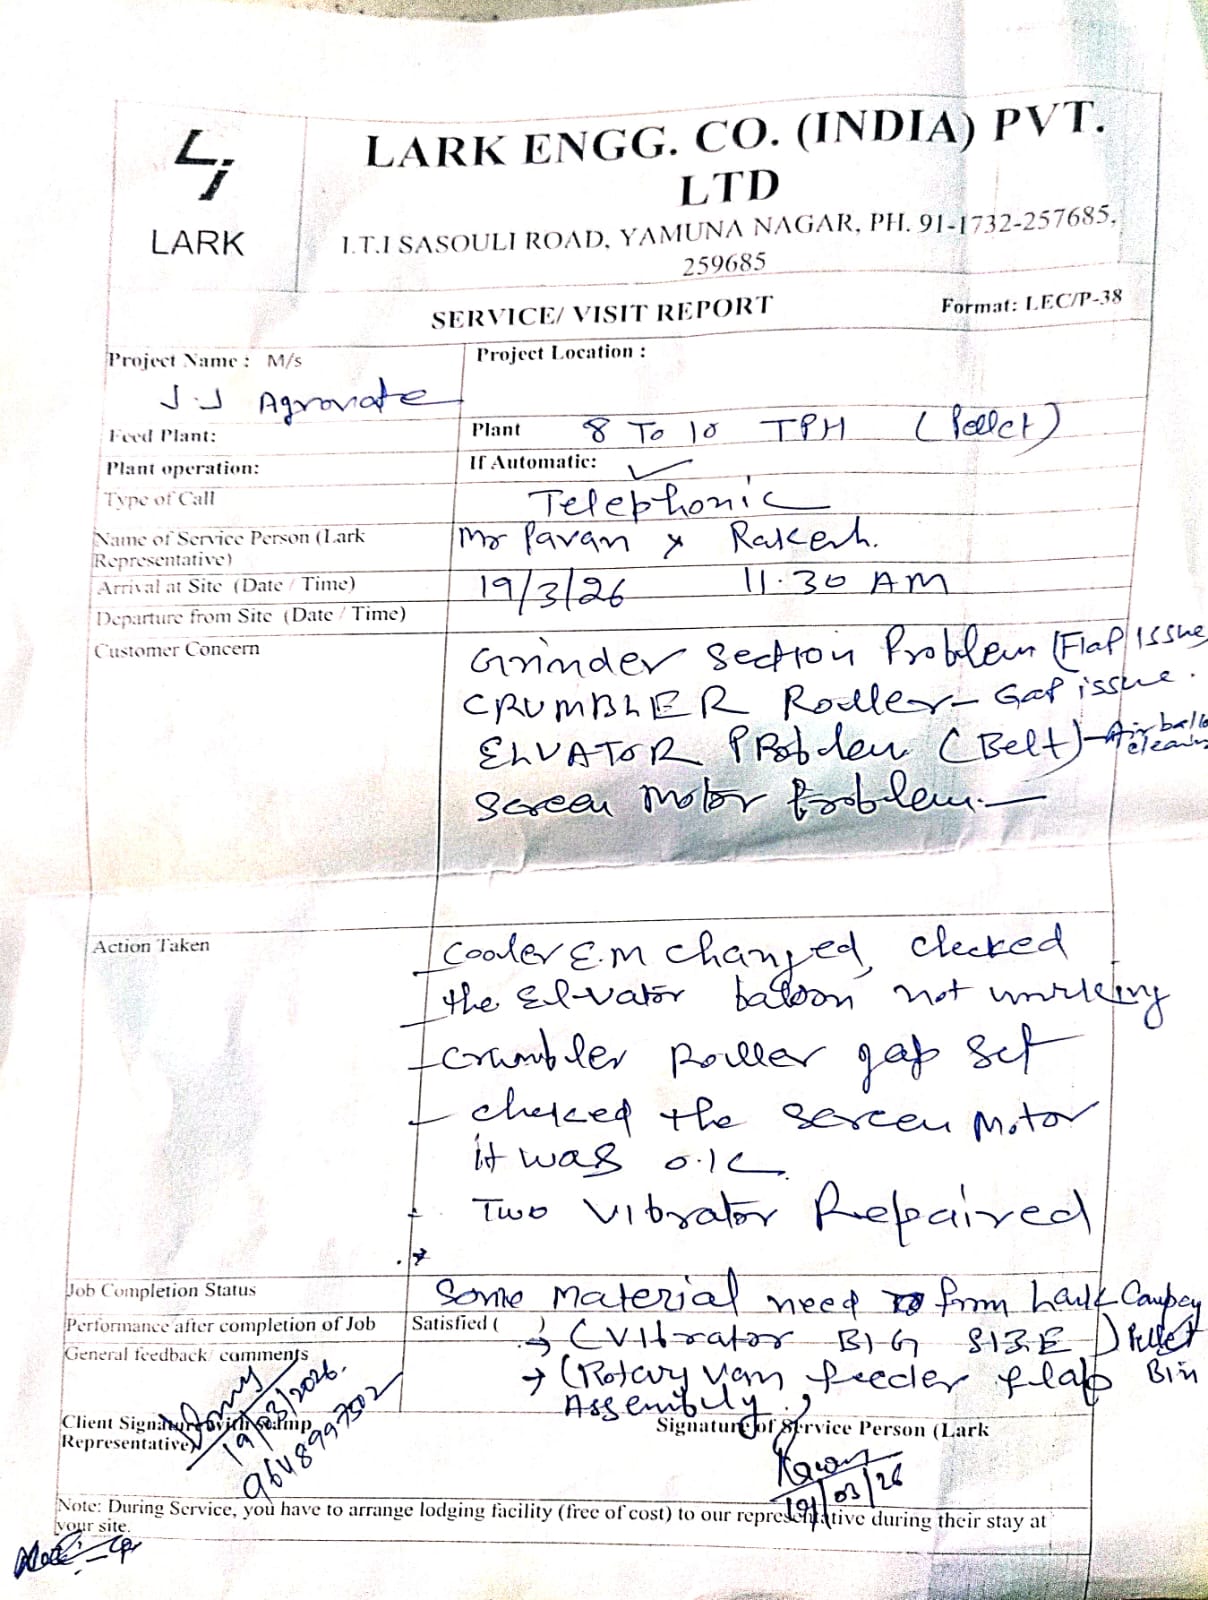 LARK
LARK ENGG. CO. (INDIA) PVT.
LTD
I.T.I SASOULI ROAD, YAMUNA NAGAR, PH. 91-1732-257685,
259685
SERVICE/ VISIT REPORT
Format: LEC/P-38
Project Name : M/s
J.J Agrovate
Project Location :
Feed Plant:
Plant 8 To 10 TPH (Pellet)
Plant operation:
If Automatic: ✓
Type of Call
Telephonic
Name of Service Person (Lark
Representative)
Mr Pavan & Rakesh.
Arrival at Site (Date / Time)
19/3/26 11.30 AM
Departure from Site (Date / Time)
Customer Concern
Grinder Section Problem (Flap Issue
CRUMBLER Roller - Gap issue.
ELVATOR PRoblem (Belt) - Air
Screen Motor Problem. —
Action Taken
- Cooler E.M changed, checked
- the Elvator baloon not working
- Crumbler Roller gap set
- checked the screen Motor
it was o.k
Two Vibrator Repaired
Job Completion Status
Some Material need from Lark
Performance after completion of Job
Satisfied ( )
→ (Vibrator BIG SIZE) Pellet
Bin
General feedback/ comments
→ (Rotary vam feeder flap
Assembly.
Client Signature with stamp
Representative)
19/03/2026.
9648997502
Signature of Service Person (Lark
19/03/26
Note: During Service, you have to arrange lodging facility (free of cost) to our representative during their stay at
your site.